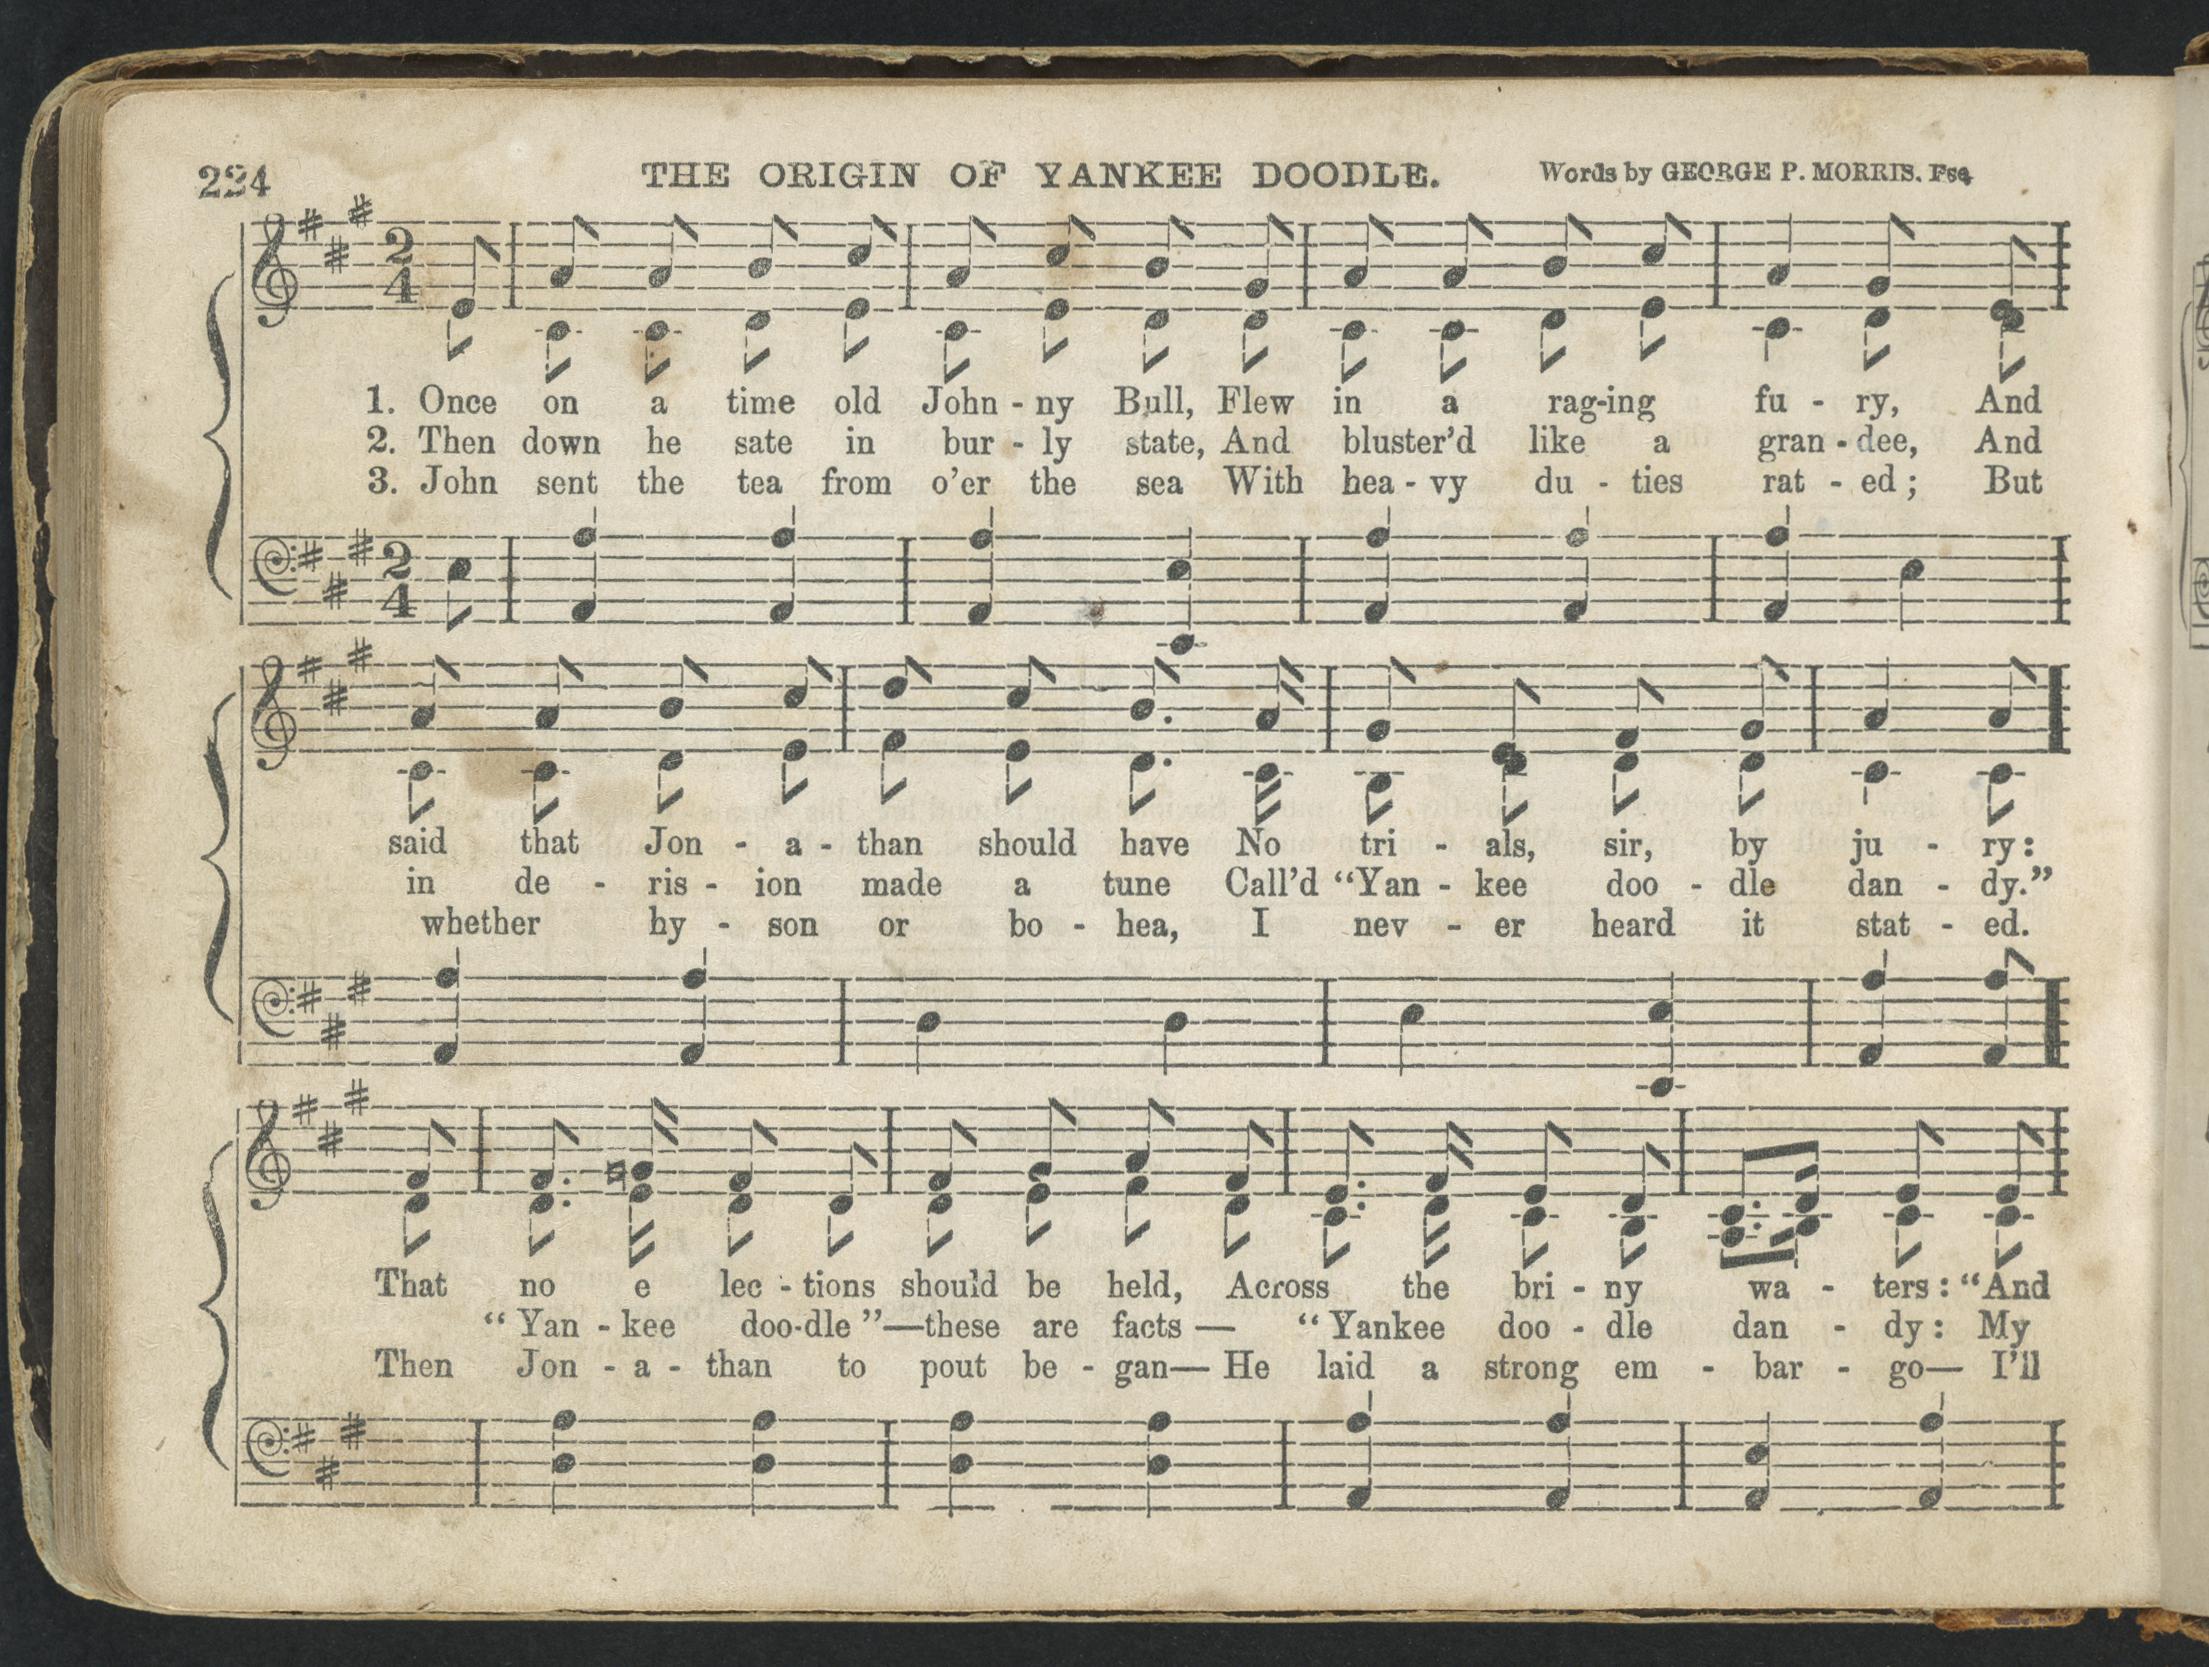 224
THE ORIGIN OF YANKEE DOODLE.
Words by GEORGE P. MORRIS. Esq
2
4
1. Once on a time old John - ny Bull, Flew in a rag-ing fu - ry, And
2. Then down he sate in bur - ly state, And bluster’d like a gran - dee, And
3. John sent the tea from o’er the sea With hea - vy du - ties rat - ed ; But
2
4
said that Jon - a - than should have No tri - als, sir, by ju - ry :
in de - ris - ion made a tune Call’d “Yan - kee doo - dle dan - dy.”
whether hy - son or bo - hea, I nev - er heard it stat - ed.
That no e lec - tions should be held, Across the bri - ny wa - ters : “And
“ Yan - kee doo-dle ”—these are facts — “ Yankee doo - dle dan - dy : My
Then Jon - a - than to pout be - gan— He laid a strong em - bar - go— I’ll